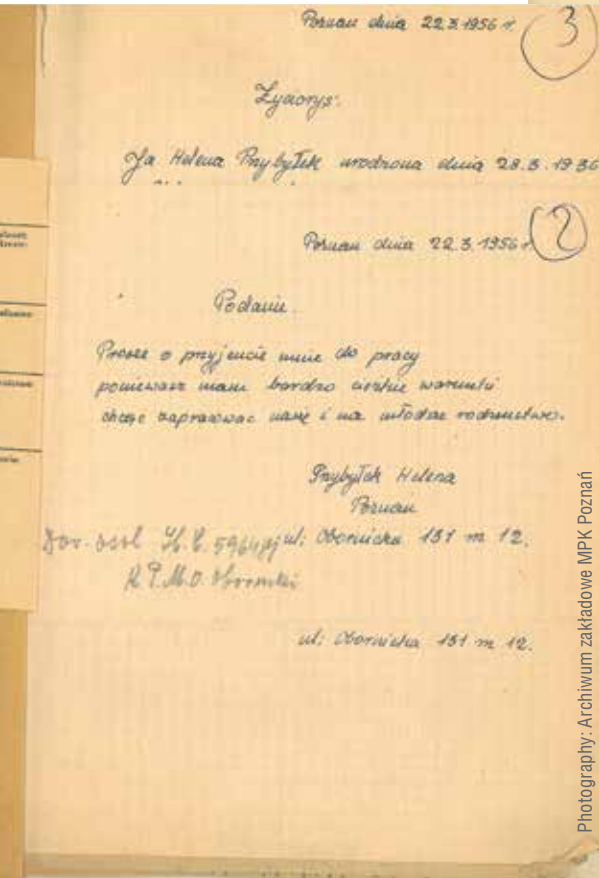 Poznań dnia 22.3.1956 r.
3
Życiorys:
Ja Helena Przybyłek urodzona dnia 28.3.1936
Poznań dnia 22.3.1956 r
2
Podanie.
Prosze o przyjencie mnie do pracy
poniewasz mam bardzo cieżkie warunki
chcąc zapracować na się i na młodsze rodzeństwo.
Przybyłek Helena
Poznań
ul: Obornicka 131 m 12.
Dow. osob
ul: Obornicka 131 m 12.
Photography: Archiwum zakładowe MPK Poznań